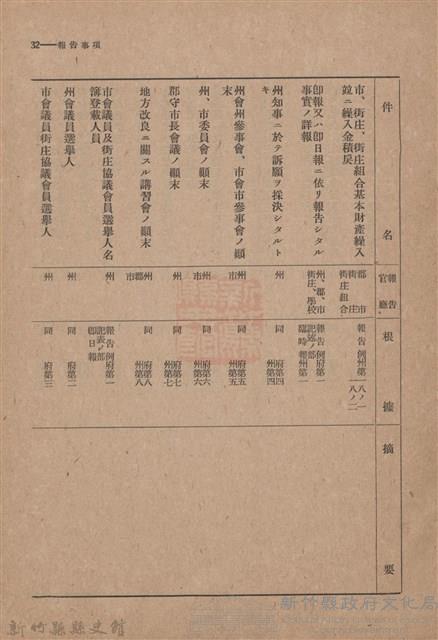 32——報告事項
件名
報告官廳
根據
摘要
市、街庄、街庄組合基本財產繰入
竝ニ繰入金積戾
郡市
街庄
街庄組合
報告例州第一八ノ一
一八ノ二
卽報又ハ卽日報ニ依リ報告シタル
事實ノ詳報
州、郡、市
街庄、學校
報告例府第一
記述ノ部
臨時報州第一
州知事ニ於テ訴願ヲ採決シタルト
キ
州
同 府第四
州第四
州會州參事會、市會市參事會ノ顚
末
州
市
同 府第五
州第五
州、市委員會ノ顚末
州
市
同 府第六
州第六
郡守市長會議ノ顚末
州
同 府第七
州第七
地方改良ニ關スル講習會ノ顚末
州郡
市
同 府第八
州第八
市會議員及街庄協議會員選擧人名
簿登載人員
州
報告例府第一
記表ノ部
卽日報
州會議員選擧人
州
同 府第二
市會議員街庄協議會員選擧人
州
同 府第三
新竹縣縣史館
新竹縣政府文化局